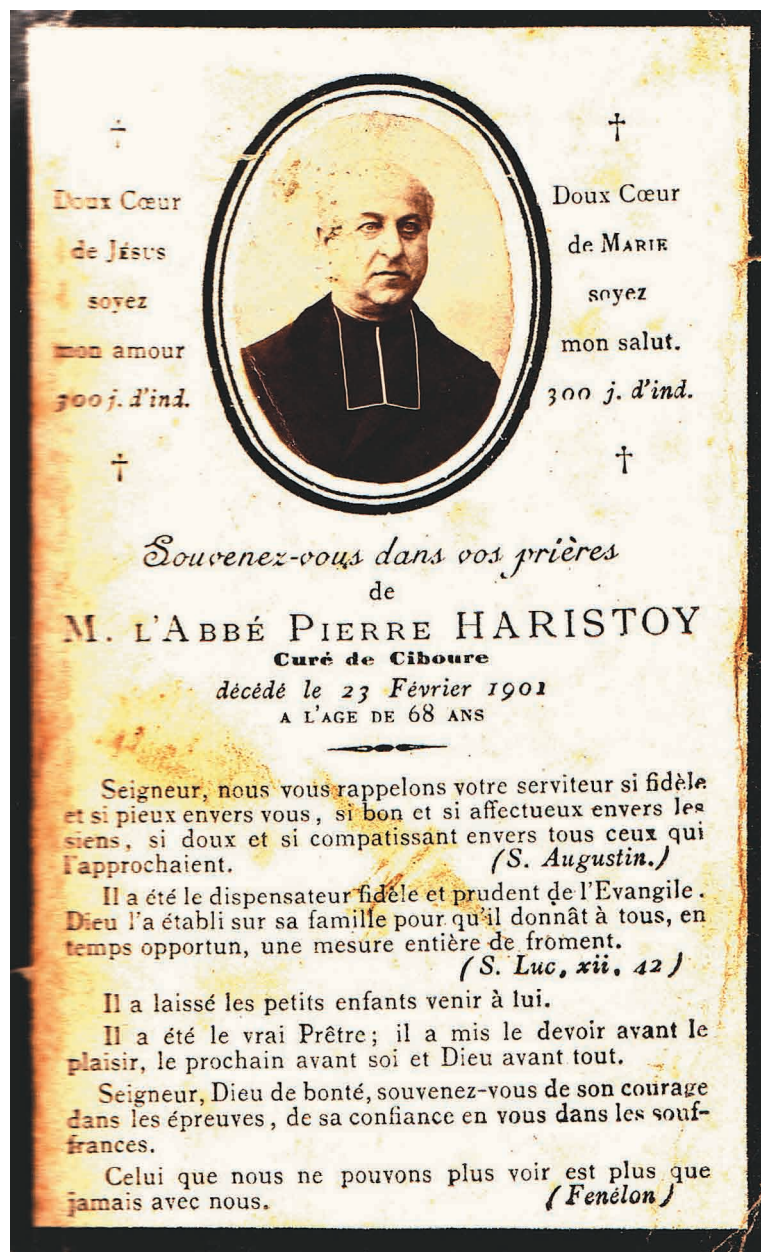 †
Doux Cœur
de Jésus
soyez
mon amour
300 j. d'ind.
†
†
Doux Cœur
de Marie
soyez
mon salut.
300 j. d'ind.
†
Souvenez-vous dans vos prières
de
M. l'Abbé Pierre HARISTOY
Curé de Ciboure
décédé le 23 Février 1901
A L'AGE DE 68 ANS
Seigneur, nous vous rappelons votre serviteur si fidèle
et si pieux envers vous, si bon et si affectueux envers les
siens, si doux et si compatissant envers tous ceux qui
l'approchaient. (S. Augustin.)
Il a été le dispensateur fidèle et prudent de l'Evangile.
Dieu l'a établi sur sa famille pour qu'il donnât à tous, en
temps opportun, une mesure entière de froment.
(S. Luc, xii, 42)
Il a laissé les petits enfants venir à lui.
Il a été le vrai Prêtre; il a mis le devoir avant le
plaisir, le prochain avant soi et Dieu avant tout.
Seigneur, Dieu de bonté, souvenez-vous de son courage
dans les épreuves, de sa confiance en vous dans les souf-
frances.
Celui que nous ne pouvons plus voir est plus que
jamais avec nous. (Fenélon)